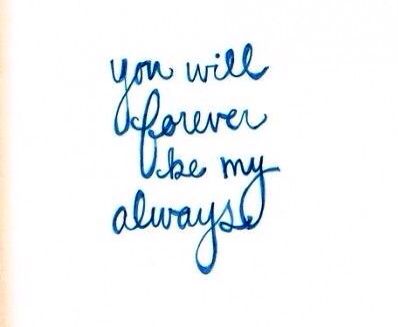 you will
forever
be my
always.